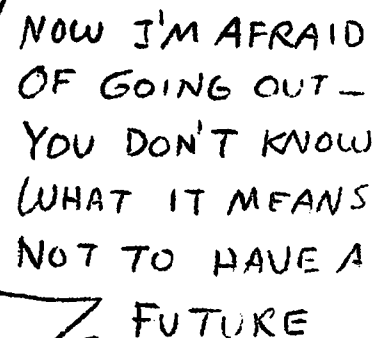 NOW I'M AFRAID
OF GOING OUT—
YOU DON'T KNOW
WHAT IT MEANS
NOT TO HAVE A
FUTURE